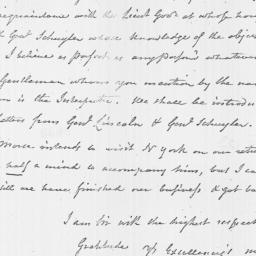 acquaintance with the Lieut Govr at whose hou
& Genl Schuyler whose knowledge of the objec
I believe as perfect as any persons whatever
Gentleman whom you mention by the na
on is the Interpreter. We shall be introduc
letters from Genl Lincoln & Genl Schuyler.
Morse intends to visit N York on our retu
half a mind to accompany him, but I ca
till we have finished our business & got ba
I am Sir with the highest respect
Gratitude yr Excellency's m